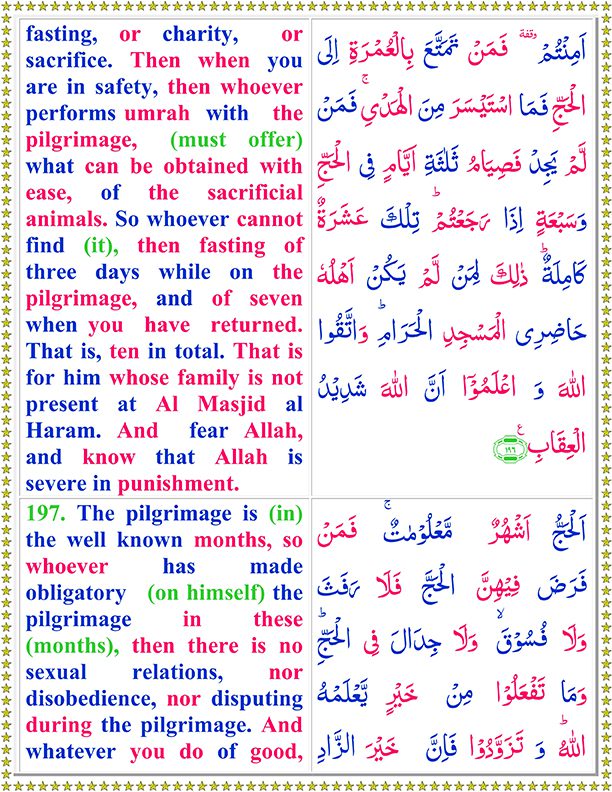 fasting, or charity, or
sacrifice. Then when you
are in safety, then whoever
performs umrah with the
pilgrimage, (must offer)
what can be obtained with
ease, of the sacrificial
animals. So whoever cannot
find (it), then fasting of
three days while on the
pilgrimage, and of seven
when you have returned.
That is, ten in total. That is
for him whose family is not
present at Al Masjid al
Haram. And fear Allah,
and know that Allah is
severe in punishment.
اَمِنْتُمْ ۥوقفة فَمَنْ تَمَتَّعَ بِالْعُمْرَةِ اِلَى
الْحَجِّ فَمَا اسْتَيْسَرَ مِنَ الْهَدْيِ ۚ فَمَنْ
لَّمْ يَجِدْ فَصِيَامُ ثَلٰثَةِ اَيَّامٍ فِى الْحَجِّ
وَسَبْعَةٍ اِذَا رَجَعْتُمْ ؕ تِلْكَ عَشَرَةٌ
كَامِلَةٌ ؕ ذٰلِكَ لِمَنْ لَّمْ يَكُنْ اَهْلُهٗ
حَاضِرِى الْمَسْجِدِ الْحَرَامِ ؕ وَاتَّقُوا
اللهَ وَ اعْلَمُوْٓا اَنَّ اللهَ شَدِيْدُ
الْعِقَابِ ع ١٩٦
197. The pilgrimage is (in)
the well known months, so
whoever has made
obligatory (on himself) the
pilgrimage in these
(months), then there is no
sexual relations, nor
disobedience, nor disputing
during the pilgrimage. And
whatever you do of good,
اَلْحَجُّ اَشْهُرٌ مَّعْلُوْمٰتٌ ۚ فَمَنْ
فَرَضَ فِيْهِنَّ الْحَجَّ فَلَا رَفَثَ
وَلَا فُسُوْقَ ۙ وَلَا جِدَالَ فِى الْحَجِّ ؕ
وَمَا تَفْعَلُوْا مِنْ خَيْرٍ يَّعْلَمْهُ
اللهُ ؕ وَ تَزَوَّدُوْا فَاِنَّ خَيْرَ الزَّادِ